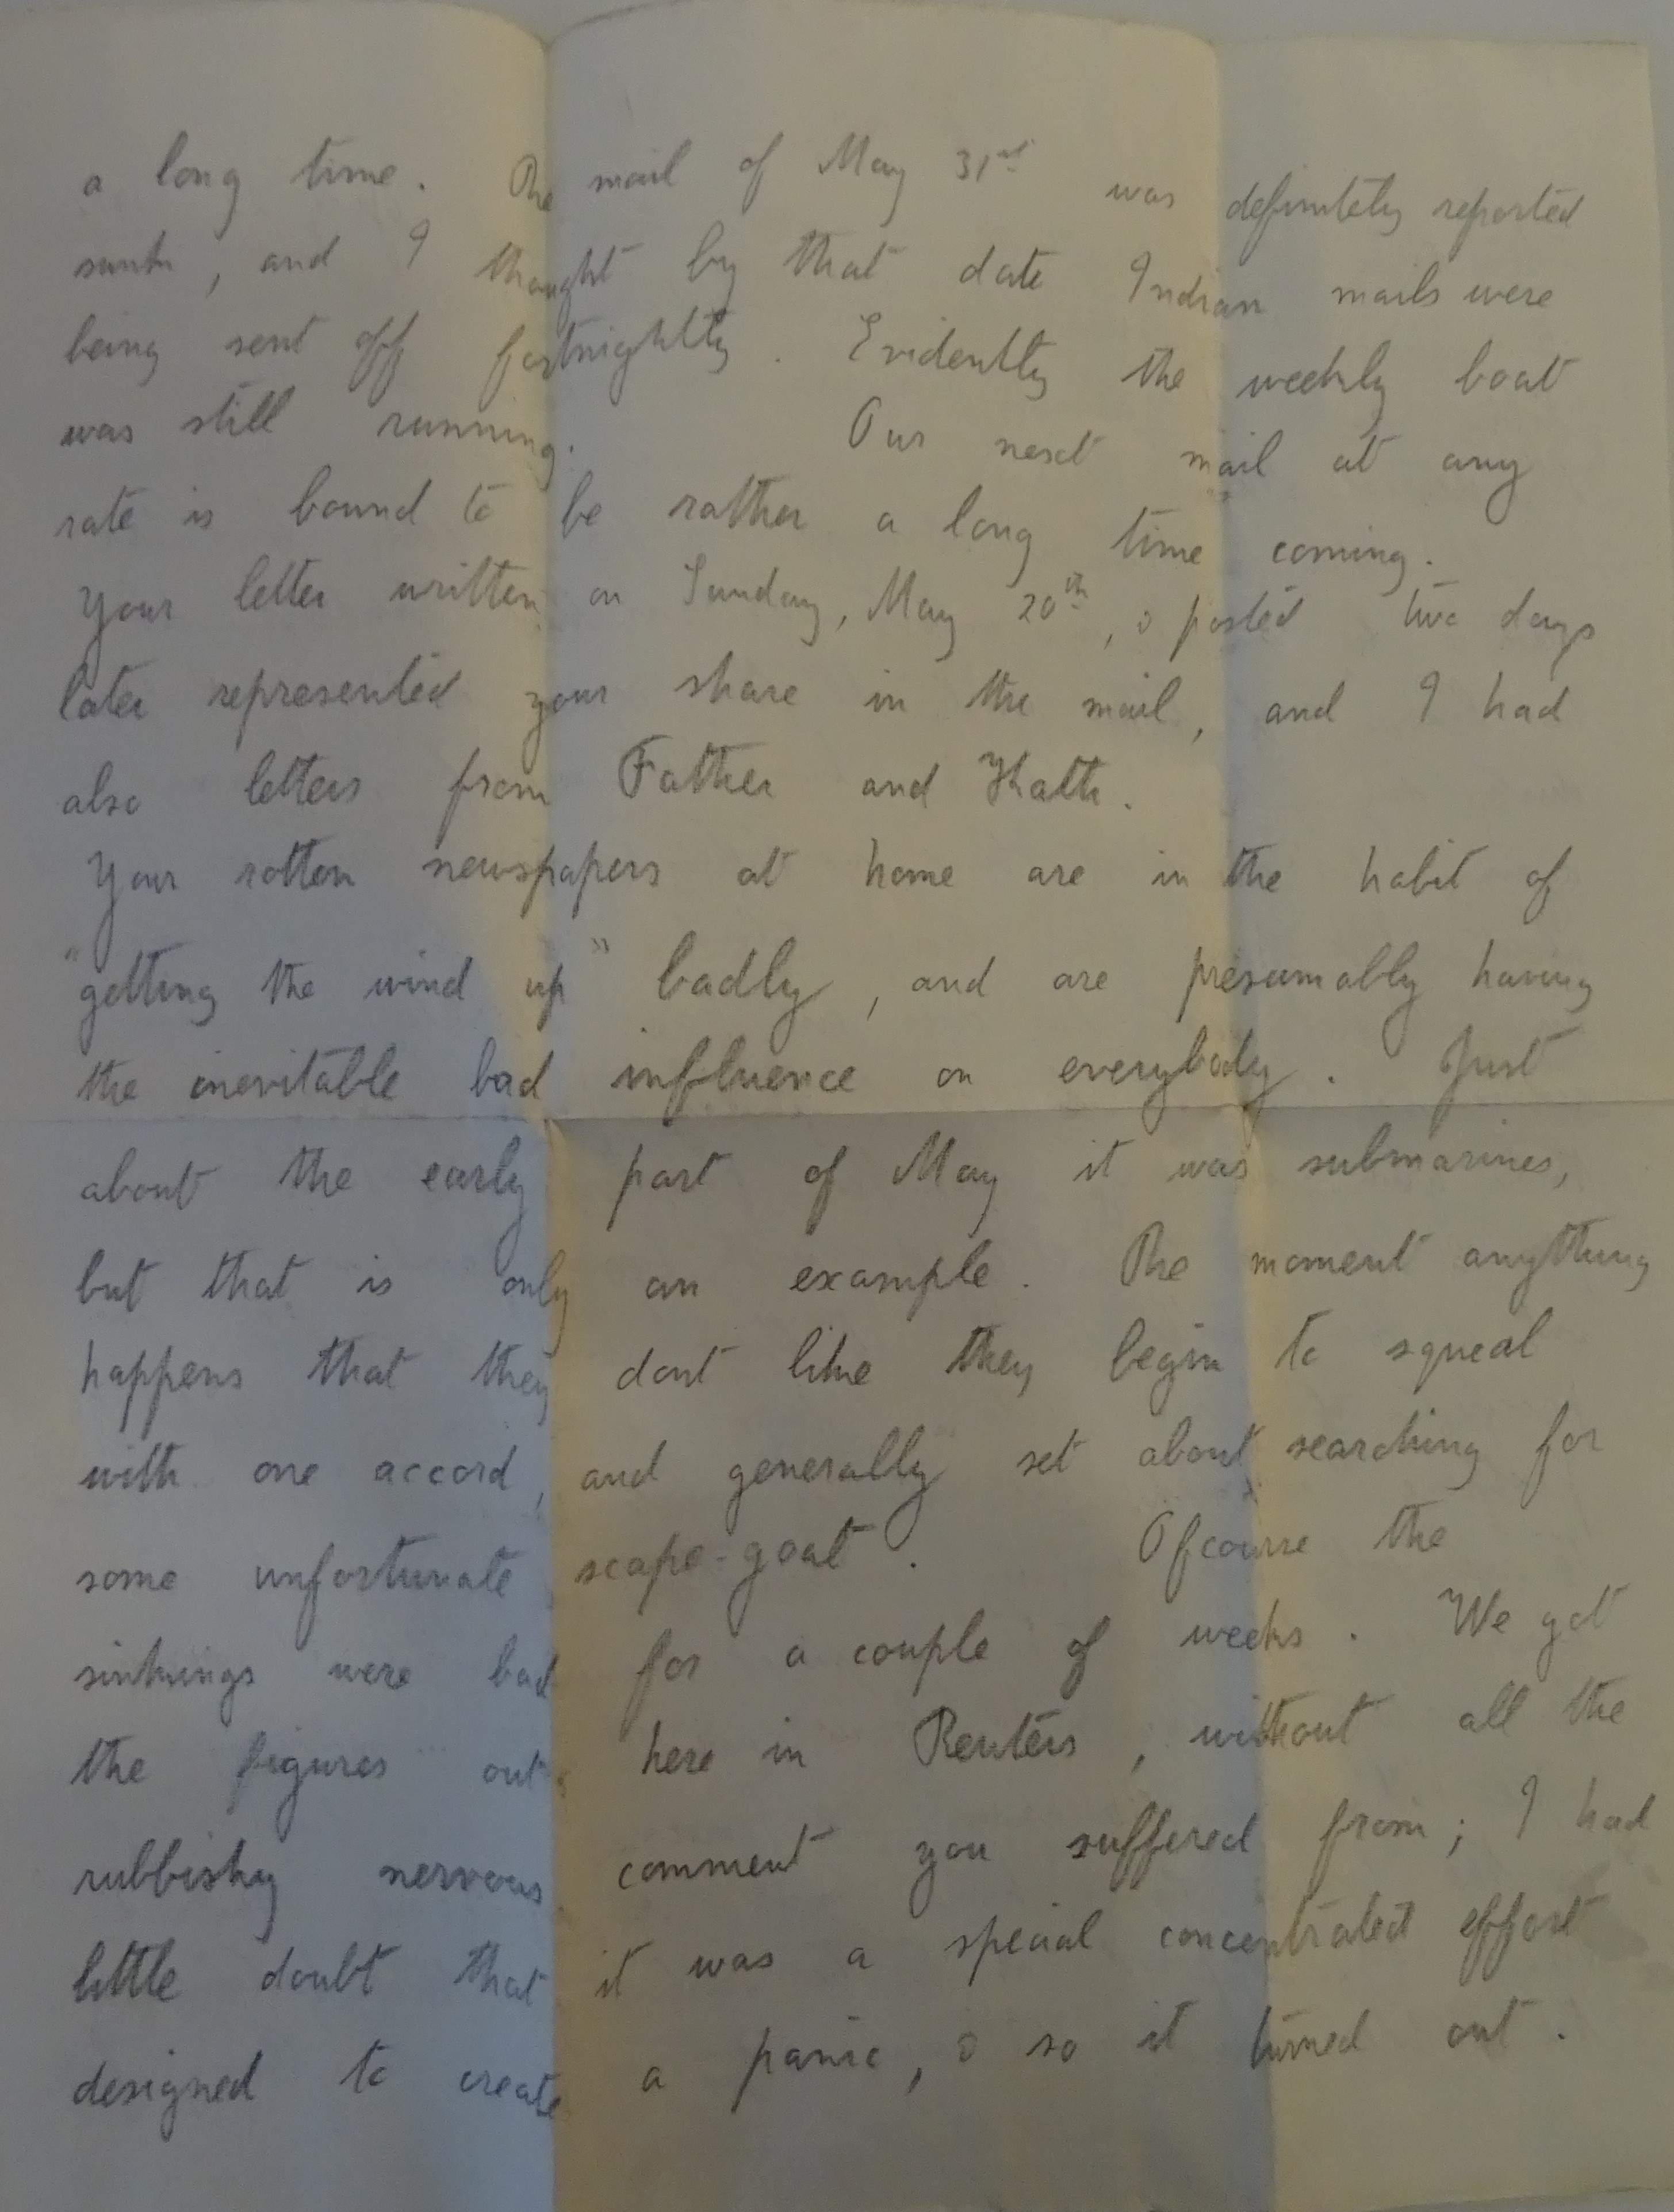 a long time. The mail of May 31st was definitely reported
sunk, and I thought by that date Indian mails were
being sent off fortnightly. Evidently the weekly boat
was still running. Our next mail at any
rate is bound to be rather a long time coming.
Your letter written on Sunday, May 20th, & posted two days
later represented your share in the mail, and I had
also letters from Father and Kath.
Your rotten newspapers at home are in the habit of
"getting the wind up" badly, and are presumably having
the inevitable bad influence on everybody. Just
about the early part of May it was submarines,
but that is only an example. The moment anything
happens that they dont like they begin to squeal
with one accord, and generally set about searching for
some unfortunate scape-goat. Ofcourse the
sinkings were bad for a couple of weeks. We got
the figures out here in Reuters, without all the
rubbishy nervous comment you suffered from; I had
little doubt that it was a special concentrated effort
designed to create a panic, & so it turned out.